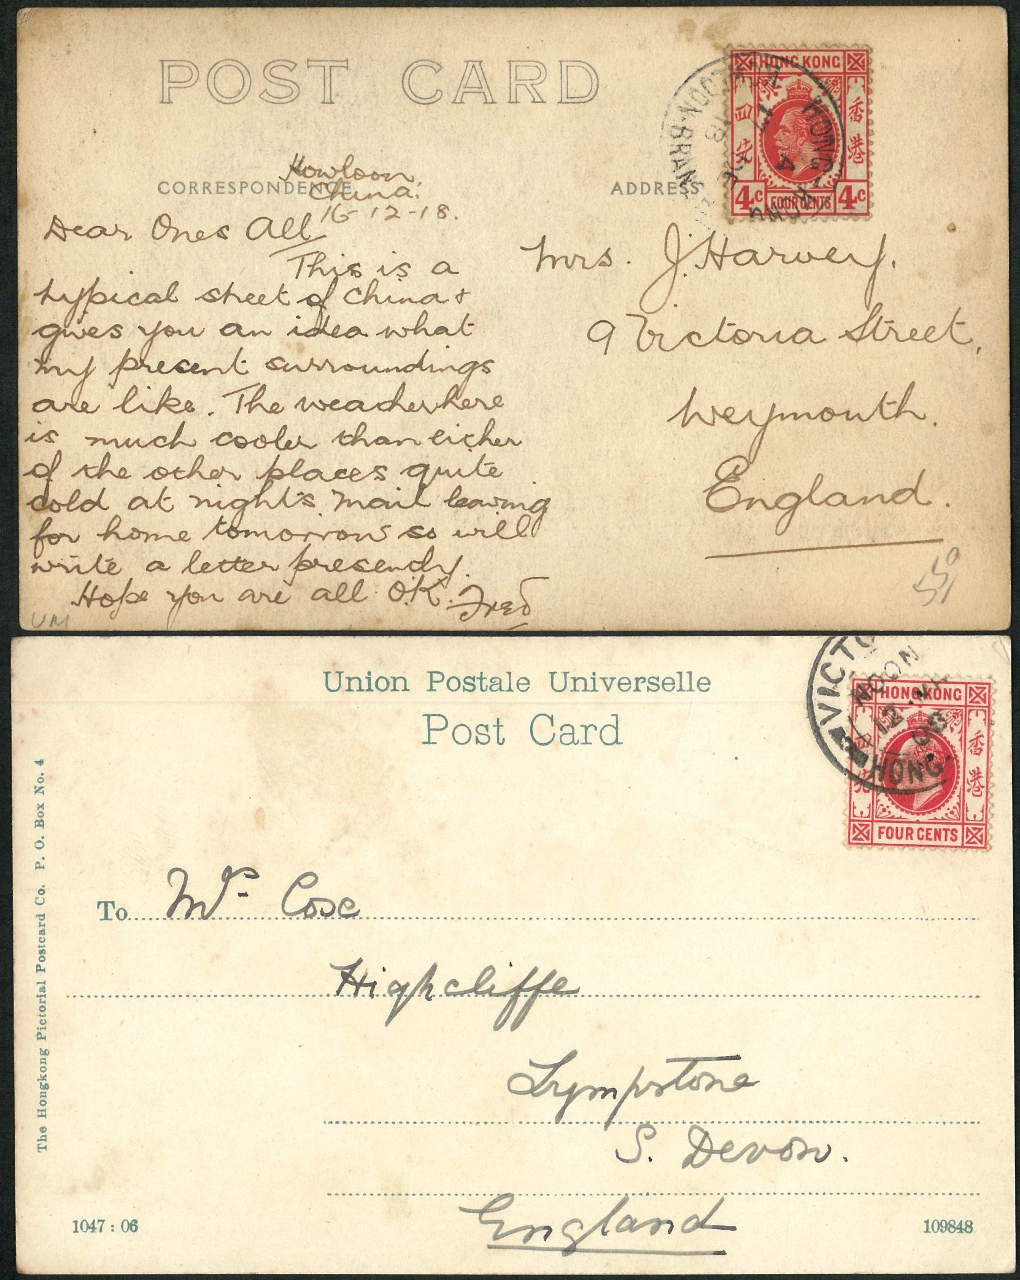 POST CARD
HONG KONG
四 香
文 港
4c FOUR CENTS 4c
KOWLOON BRANCH
HONG KONG
CORRESPONDENCE
ADDRESS
Howloon,
China.
16-12-18.
Dear Ones All
This is a
typical street of China &
gives you an idea what
my present surroundings
are like. The weather here
is much cooler than either
of the other places quite
cold at night's. Mail leaving
for home tomorrow so will
write a letter presently.
Hope you are all OK. Fred
Mrs. J. Harvey.
9 Victoria Street,
Weymouth.
England.
UM
Union Postale Universelle
Post Card
HONG KONG
香
港
FOUR CENTS
VICTO
NOON
12
HONG
The Hongkong Pictorial Postcard Co. P. O. Box No. 4
To Mrs
Highcliffe
Lympstone
S. Devon.
England
1047 : 06
109848